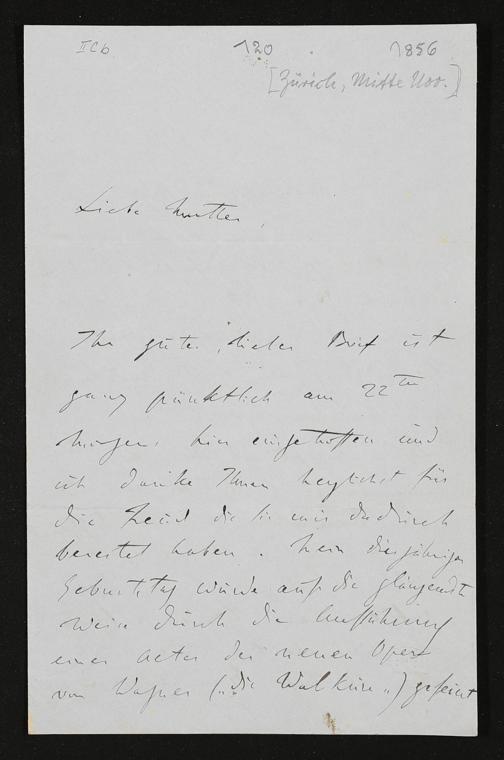 IICb 120 1856
[Zürich, Mitte Nov.]
Liebe Mutter,
Ihr guter, lieber Brief ist
ganz pünktlich am 22ten
Morgens hier eingetroffen und
ich danke Ihnen herzlichst für
die Freud die Sie mir dadurch
bereitet haben. Mein diesjähriger
Geburtstag wurde auf die glänzendste
Weise durch die Aufführung
eines Actes der neuen Oper
von Wagner („die Walküre„) gefeiert